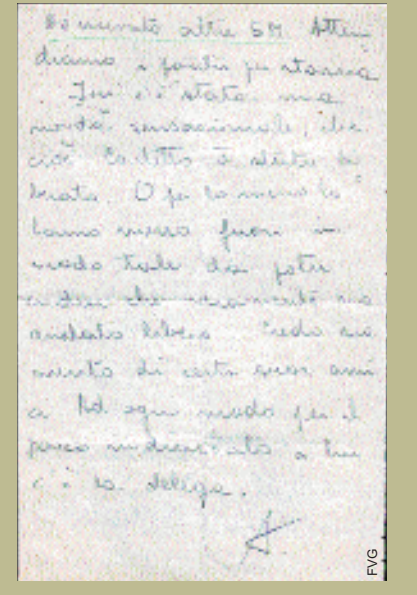 Ho ricevuto altre 5M Atten
diamo i fondi per stassera
. Ieri c'è stata una
novità sensazionale, che
cioè è stata
O per lo meno lo
hanno messo fuori in
modo tale da poter
credere che veramente sia
andato libero. Credo sia
merito di certi suoi ami
ci Ad ogni modo per il
a lui
c'è la delega.
FVG